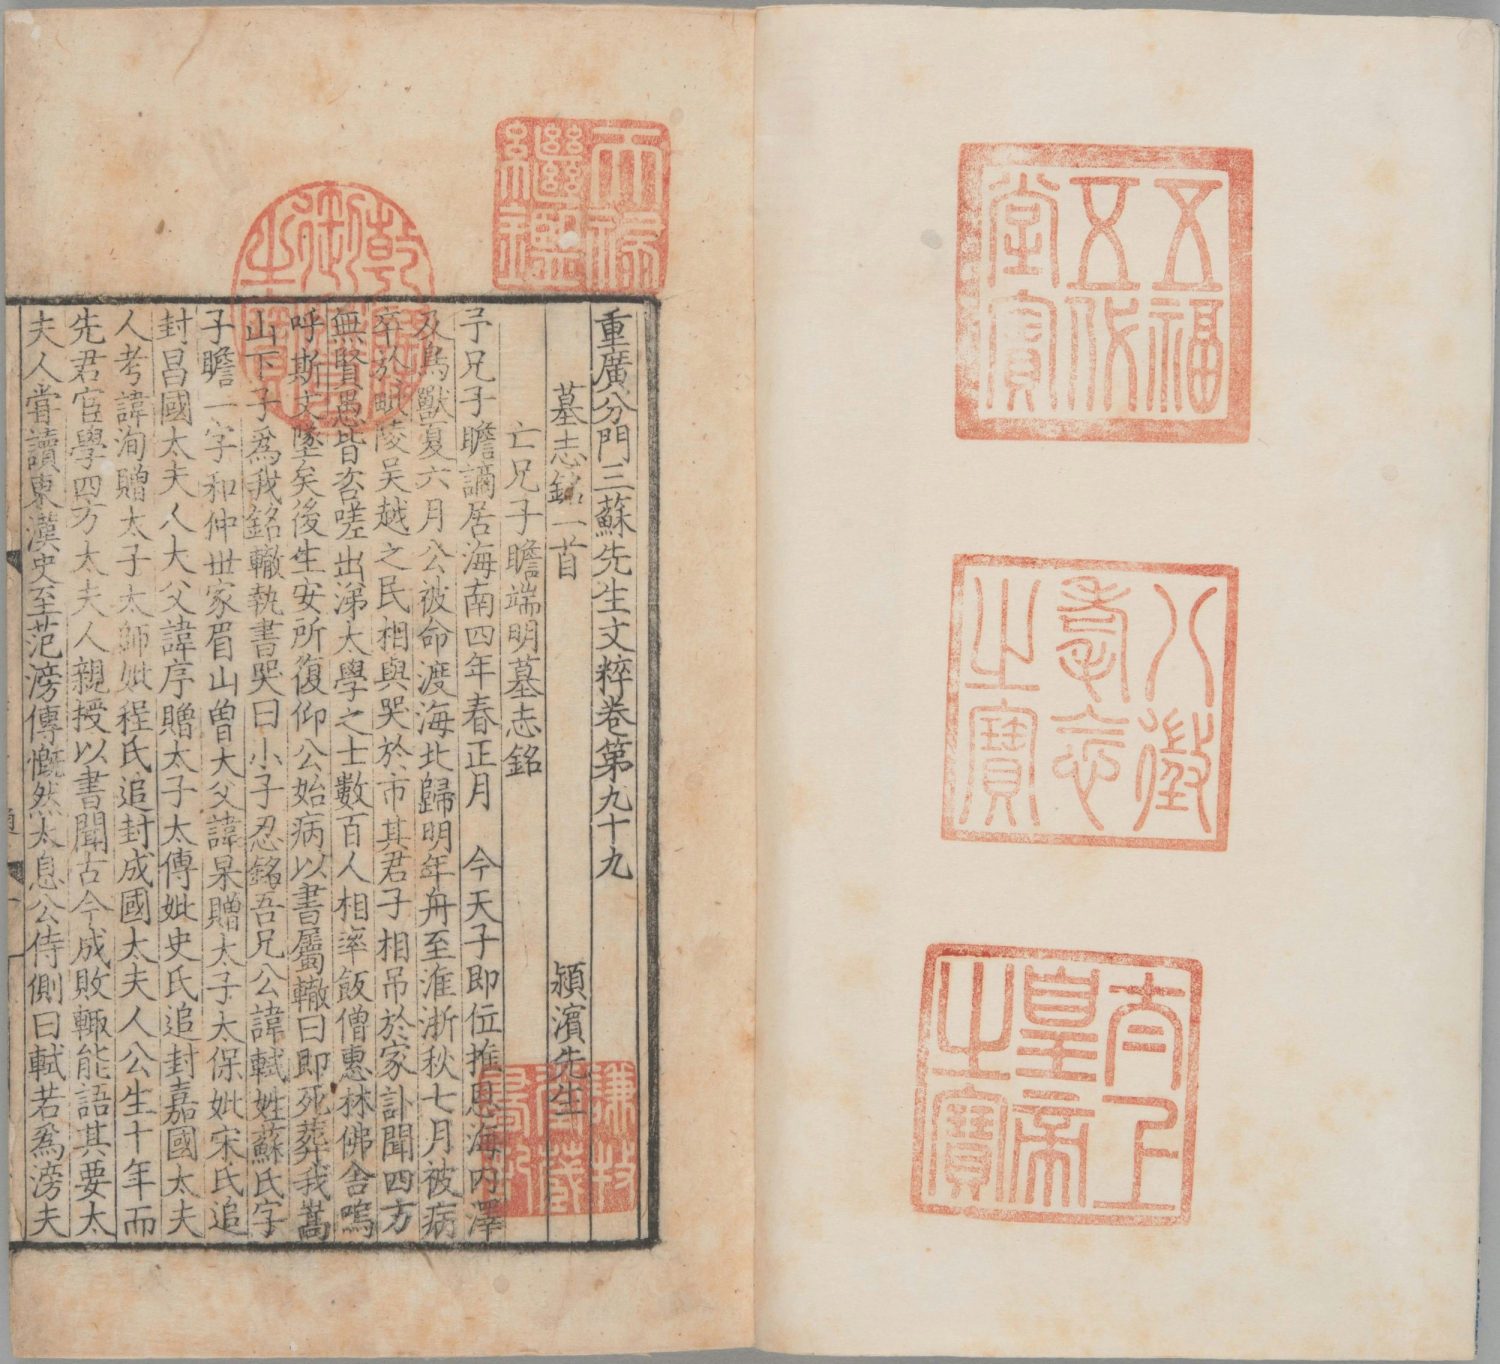 五福
五代
堂寶
八徵
耄念
之寶
太上
皇帝
之寶
天祿
繼鑑
乾隆
御覽
之寶
重廣分門三蘇先生文粹卷第九十九
墓志銘一首 潁濱先生
亡兄子瞻端明墓志銘
予兄子瞻謫居海南四年春正月 今天子即位推恩海內澤
及鳥獸夏六月公被命渡海北歸明年舟至淮浙秋七月被病
卒於毗陵吳越之民相與哭於市其君子相吊於家訃聞四方
無賢愚皆咨嗟出涕大學之士數百人相率飯僧惠林佛舍嗚
呼斯文墜矣後生安所復仰公始病以書屬轍曰即死葬我嵩
山下子爲我銘轍執書哭曰小子忍銘吾兄公諱軾姓蘇氏字
子瞻一字和仲世家眉山曾大父諱杲贈太子太保妣宋氏追
封昌國太夫人大父諱序贈太子太傅妣史氏追封嘉國太夫
人考諱洵贈太子太師妣程氏追封成國太夫人公生十年而
先君宦學四方太夫人親授以書聞古今成敗輒能語其要太
夫人嘗讀東漢史至范滂傳慨然太息公侍側曰軾若爲滂夫
謙牧
堂藏
書記